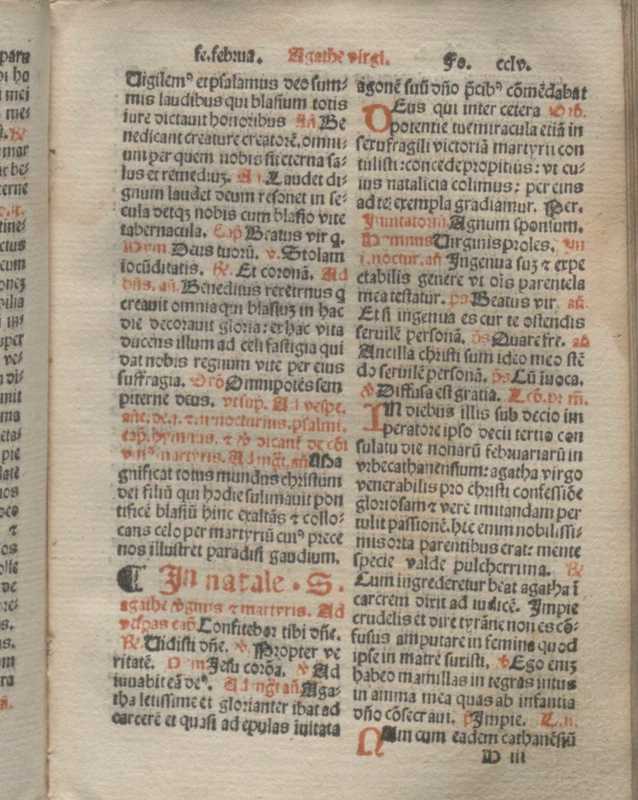 fe.februa. Agathe virgi. Fo. cclv.
Uigilemꝰ et psalamus deo sum⸗
mis laudibus qui blasium totis
iure dictauit honoribus Añ. Be
nedicant creature creatorē, omni⸗
um per quem nobis sit eterna sa⸗
lus et remediuȝ. Añ. Laudet di⸗
gnum laudet deum resonet in se⸗
cula detqȝ nobis cum blasio vite
tabernacula. Cap̃. Beatus vir q.
Hym Deus tuorū. v. Stolam
iocūditatis. R̃. Et coronā. Ad
bñs. añ. Benedictus rex eternus q
creauit omnia qui blasiuȝ in hac
die decorauit gloria: ex hac vita
ducens illum ad celi fastigia qui
dat nobis regnum vite per eius
suffragia. Orõ Omnipotēs sem
piterne deus. vt sup. Ad vespe.
añe. de.j. ⁊.ij nocturnis. psalmi.
cap̃. hymnus. ⁊ v̾ dicant̃ de cõi
vniꝰ martyris. Ad mg̃t. añ Ma
gnificat totus mundus christum
dei filiū qui hodie sulimauit pon
tificē blasiū hinc exaltās ⁊ collo⸗
cans celo per martyriū cuiꝰ prece
nos illustret paradisi gaudium.
¶ In natale . S.
agathe v̾gnis ⁊ martyris. Ad
vesp̃as cap̃ Confitebor tibi dñe.
R̃. Uidisti dñe. v̾. Propter ve
ritatē. Hym Jesu corõa. v̾ Ad
iuuabit eā deꝰ. Ad mg̃t añ Aga⸗
tha letissime et glorianter ibat ad
carcerē et quasi ad epulas īuitata
agonē suū dño p̃cibꝰ cōmēdabat
DEus qui inter cetera Orõ.
potentie tue miracula etiā in
sexu fragili victoriā martyrii con
tulisti: concede propitius: vt cu⸗
ius natalicia colimus: per eius
ad te exempla gradiamur. Per.
Inuitatoriū. Agnum sponsum.
Hymnus Uirginis proles. In
.i. noctur. añ Ingenua suȝ ⁊ expe
ctabilis genere vt oīs parentela
mea testatur. ps Beatus vir. añ.
Et si ingenua es cur te ostendis
seruilē personā. p̄s Quare fre. añ
Ancilla christi sum ideo meo stē
do seruilē personā. p̄s Cū īuoca.
v̾ Diffusa est gratia. Lcõ. pr̄m̄.
IN diebus illis sub decio im
peratore ipso decii tertio con
sulatu die nonarū februariarū in
vrbe cathanensium: agatha virgo
venerabilis pro christi confessiōe
gloriosam ⁊ vere imitandam per
tulit passionē. hec enim nobilissi⸗
mis orta parentibus erat: mente
specie valde pulcherrima. R̃
Cum ingrederetur beat̃ agatha ī
carcerem dixit ad iudicē. Impie
crudelis et dire tyrāne non es cō⸗
fusus amputare in femina quod
ipse in matre suxisti. v̾ Ego eniȝ
habeo mamillas in tegras intus
in anima mea quas ab infantia
dño cōsecraui. p̃ Impie. L. ii.
NAm cum eadem cathanēsiū
H iii